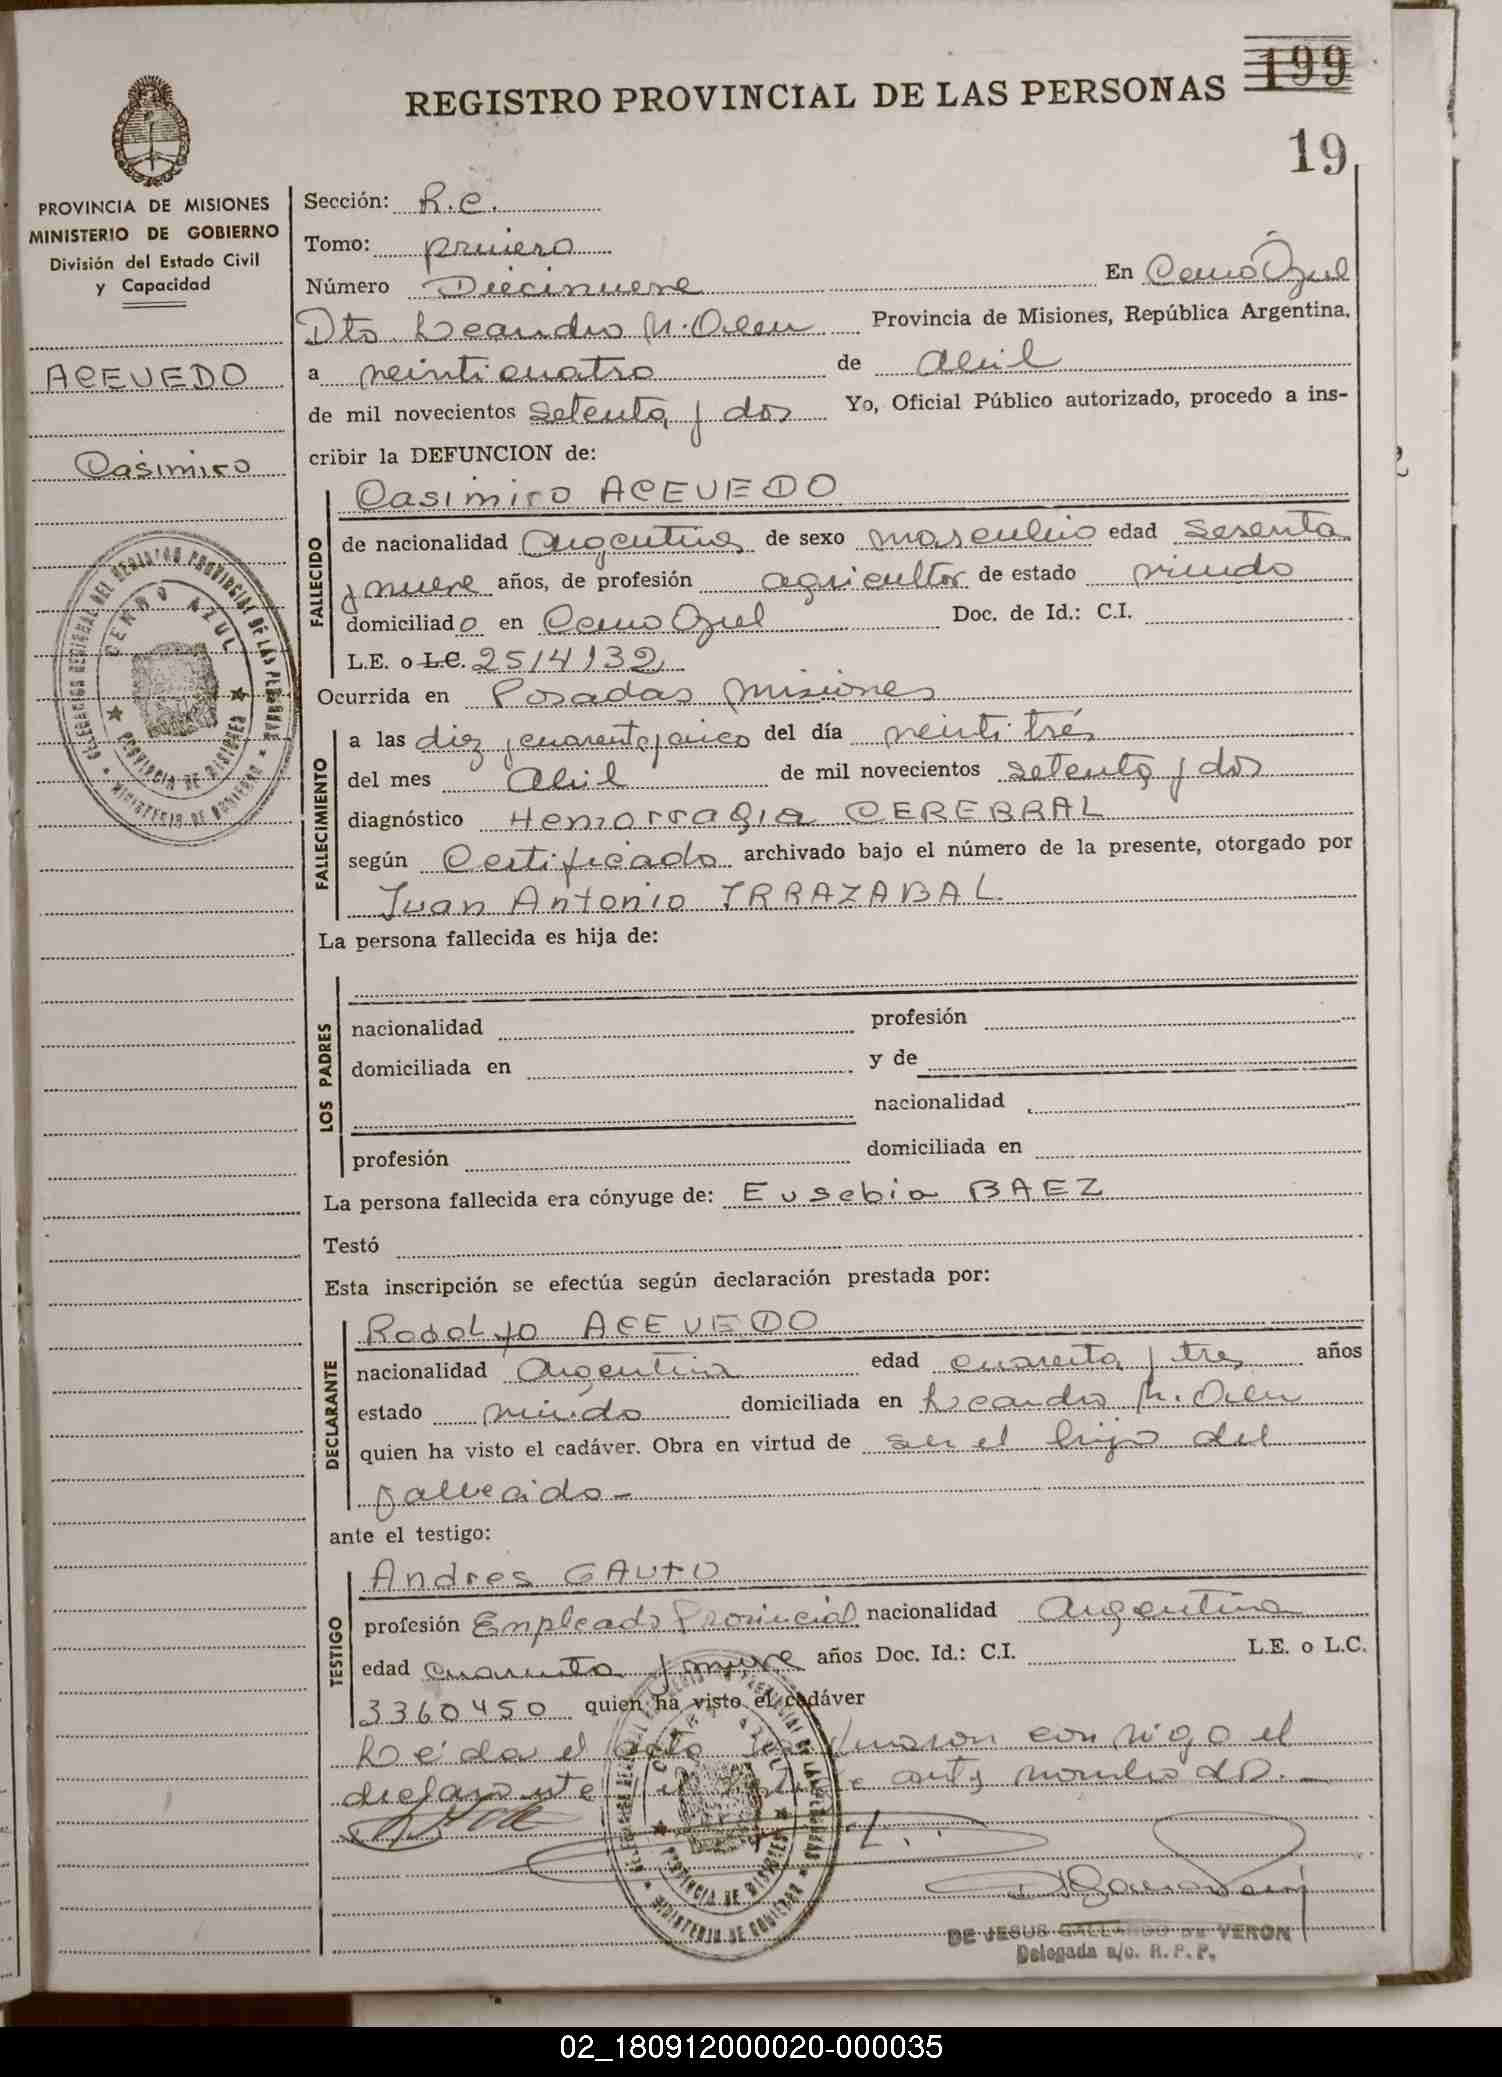 199
REGISTRO PROVINCIAL DE LAS PERSONAS
19
PROVINCIA DE MISIONES
MINISTERIO DE GOBIERNO
División del Estado Civil
y Capacidad
ACEVEDO
Casimiro
Sección: R.C.
Tomo: primero
Número Diecinueve En Cerro Azul
Dto. Leandro N. Alem Provincia de Misiones, República Argentina,
a veinticuatro de Abril
de mil novecientos setenta y dos Yo, Oficial Público autorizado, procedo a ins-
cribir la DEFUNCION de:
FALLECIDO
Casimiro ACEVEDO
de nacionalidad Argentina de sexo masculino edad sesenta
y nueve años, de profesión agricultor de estado viudo
domiciliado en Cerro Azul Doc. de Id.: C.I.
L.E. o L.C. 2514132
Ocurrida en Posadas Misiones
FALLECIMIENTO
a las diez y cuarenta y cinco del día veinti trés
del mes Abril de mil novecientos setenta y dos
diagnóstico Hemorragia CEREBRAL
según Certificado archivado bajo el número de la presente, otorgado por
Juan Antonio IRRAZABAL
La persona fallecida es hija de:
LOS PADRES
nacionalidad profesión
domiciliada en y de
nacionalidad
profesión domiciliada en
La persona fallecida era cónyuge de: Eusebia BAEZ
Testó
Esta inscripción se efectúa según declaración prestada por:
DECLARANTE
Rodolfo ACEVEDO
nacionalidad Argentina edad cuarenta y tres años
estado viudo domiciliada en Leandro N. Alem
quien ha visto el cadáver. Obra en virtud de ser el hijo del
fallecido-
ante el testigo:
TESTIGO
Andres GAUTO
profesión Empleado Provincial nacionalidad Argentina
edad cuarenta y nueve años Doc. Id.: C.I. L.E. o L.C.
3360450 quien ha visto el cadáver
Leida el acta la firman conmigo el
declarante y el ante nombrado.-
CERRO AZUL
PROVINCIA DE MISIONES
MINISTERIO DE GOBIERNO
DE JESUS GALLARDO DE VERON
Delegada a/c. R. P. P.
02_180912000020-000035